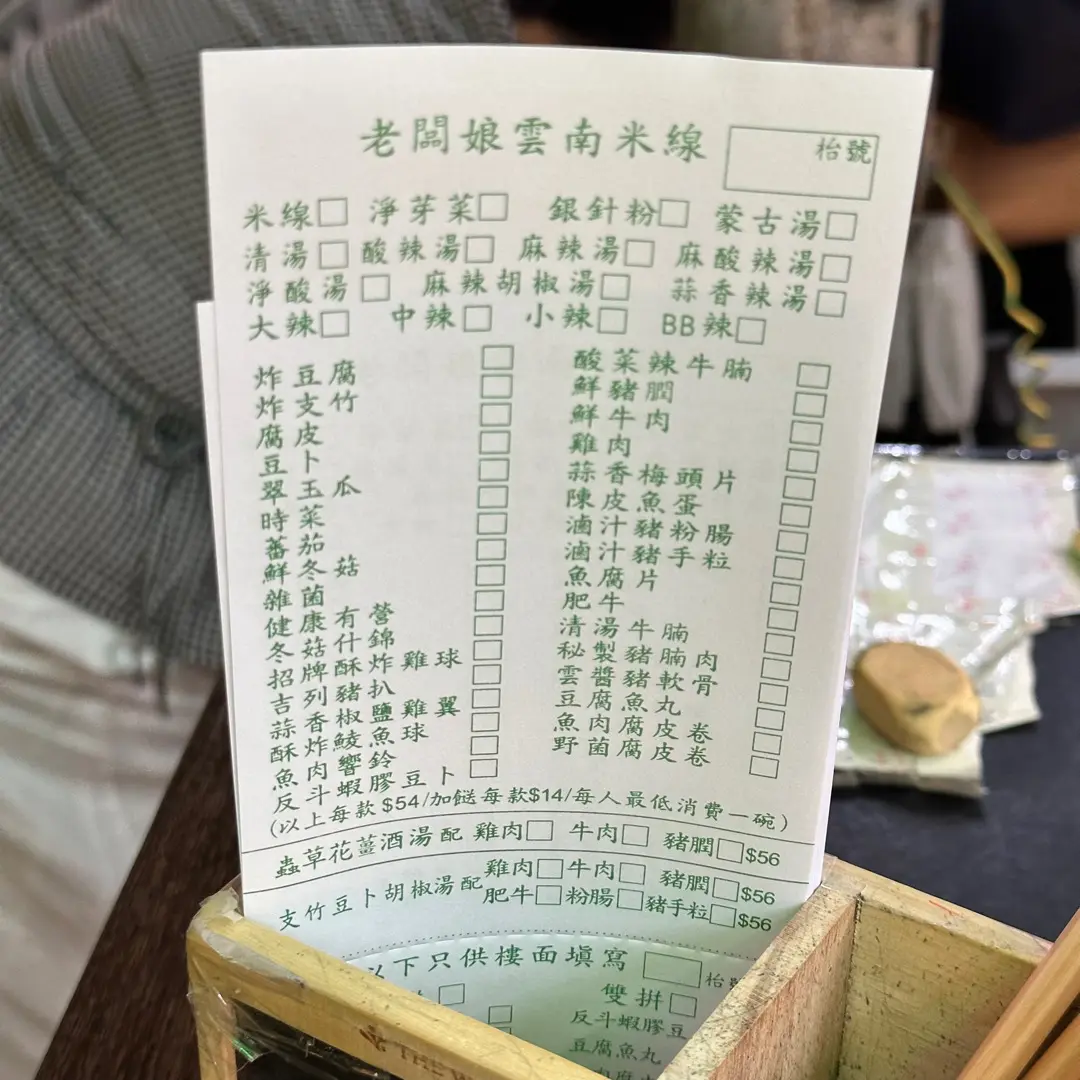 老闆娘雲南米線
枱號
米線□ 淨芽菜□ 銀針粉□ 蒙古湯□
清湯□ 酸辣湯□ 麻辣湯□ 麻酸辣湯□
淨酸湯□ 麻辣胡椒湯□ 蒜香辣湯□
大辣□ 中辣□ 小辣□ BB辣□
炸豆腐□
炸支竹□
腐皮□
豆卜□
翠玉瓜□
時菜□
蕃茄□
鮮冬菇□
雜菌□
健康有營□
冬菇什錦□
招牌酥炸雞球□
吉列豬扒□
蒜香椒鹽雞翼□
酥炸鯪魚球□
魚肉響鈴□
反斗蝦膠豆卜□
酸菜辣牛腩□
鮮豬膶□
鮮牛肉□
雞肉□
蒜香梅頭片□
陳皮魚蛋□
滷汁豬粉腸□
滷汁豬手粒□
魚腐片□
肥牛□
清湯牛腩□
秘製豬腩肉□
雲醬豬軟骨□
豆腐魚丸□
魚肉腐皮卷□
野菌腐皮卷□
(以上每款$54/加餸每款$14/每人最低消費一碗)
蟲草花薑酒湯配 雞肉□ 牛肉□ 豬膶□$56
支竹豆卜胡椒湯配 雞肉□ 牛肉□ 豬膶□$56
肥牛□ 粉腸□ 豬手粒□$56
以下只供樓面填寫 □枱
雙拼□
反斗蝦膠豆
豆腐魚丸